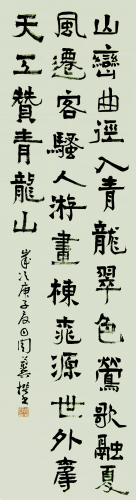 山巒曲徑入青龍翠色鶯歌融夏
風遷客騷人游畫棟桃源世外摹
天工贊青龍山
歲次庚子辰日閆